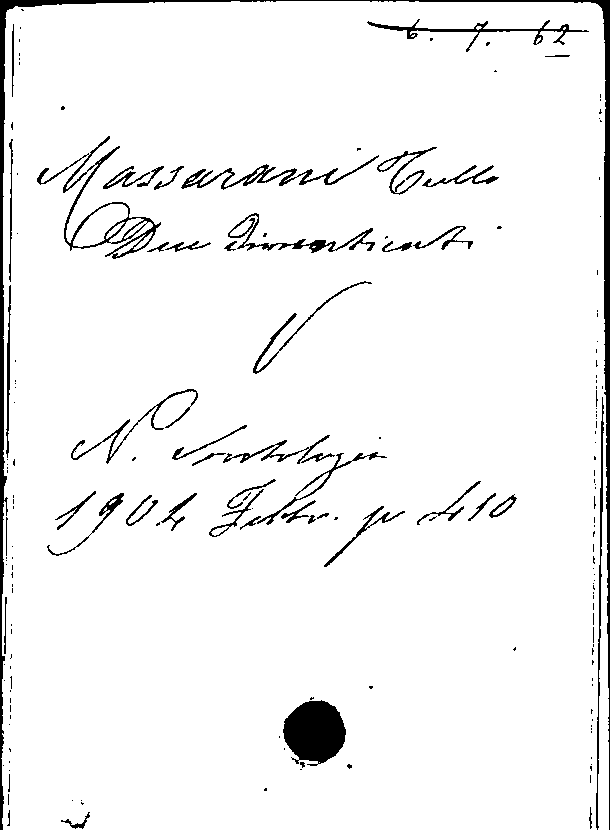 6. 7. 62
Massarani Tullo
Due dimenticati
V
N. Antologia
1904 Febbr. p 410